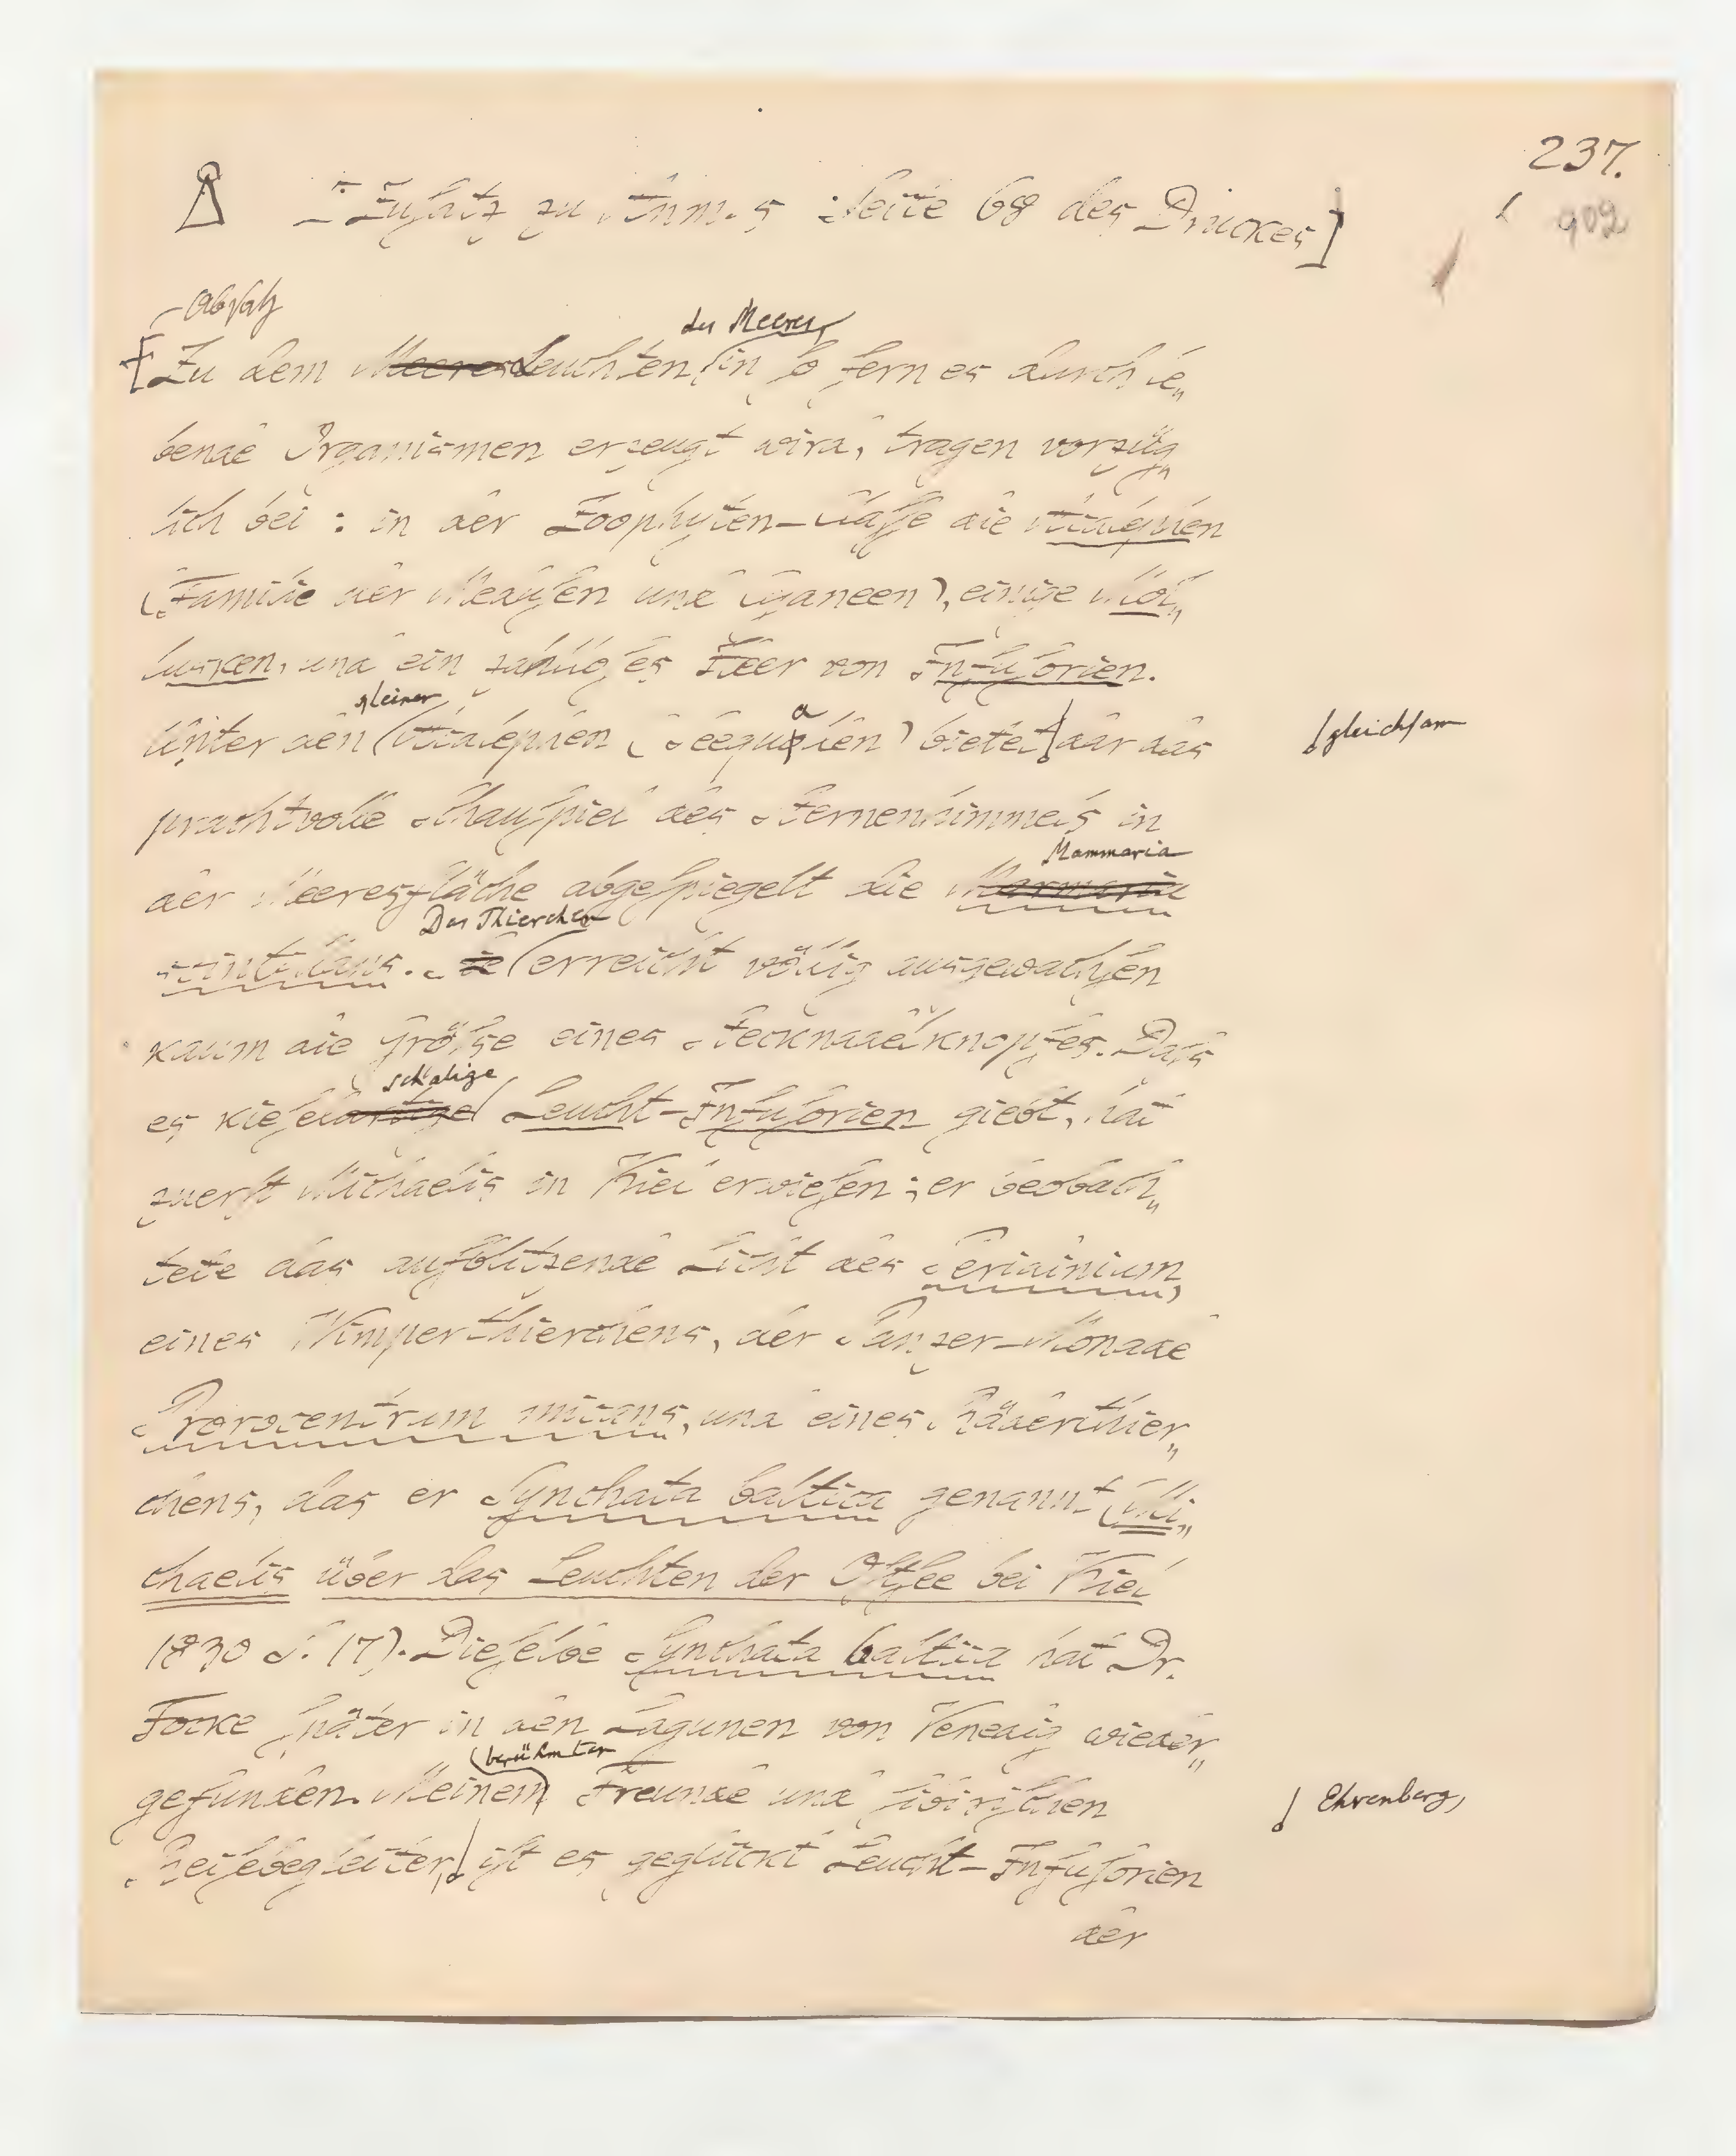 237.
902
[Zusatz zu Anm. 5 Seite 68 des Druckes]
Absatz
des Meeres
Zu dem Meeres Leuchten, in so fern es durch le„
bende Organismen erzeugt wird, tragen vorzüg„
lich bei: in der Zoophyten-Classe die Acalephen
(Familie der Medusen und Cyaneen), einige Mol„
lusken, und ein zahlloses Heer von Infusorien.
kleiner
Unter den Acalephen (Seequallen) bietet dar das
gleichsam
prachtvolle Schauspiel des Sternenhimmels in
Mammaria
der Meeresfläche abgespiegelt die Marmaria
Das Thierchen
scintillans. Sie erreicht völlig ausgewachsen
kaum die Größe eines Stecknadelknopfes. Daß
schalige
es kieselartige Leucht-Infusorien giebt, hat
zuerst Michaelis in Kiel erwiesen; er beobach„
tete das aufblitzende Licht des Peridinium,
eines Wimperthierchens, der Panzer-Monade
Prorocentrum micans, und eines Räderthier„
chens, das er Synchata baltica genannt (Mi„
chaelis über das Leuchten der Ostsee bei Kiel
1830 S. 17). Dieselbe Synchata baltica hat Dr.
Focke später in den Lagunen von Venedig wieder„
berühmten
gefunden. Meinem Freunde und sibirischen
Ehrenberg,
Reisebegleiter, ist es geglückt Leucht-Infusorien
der